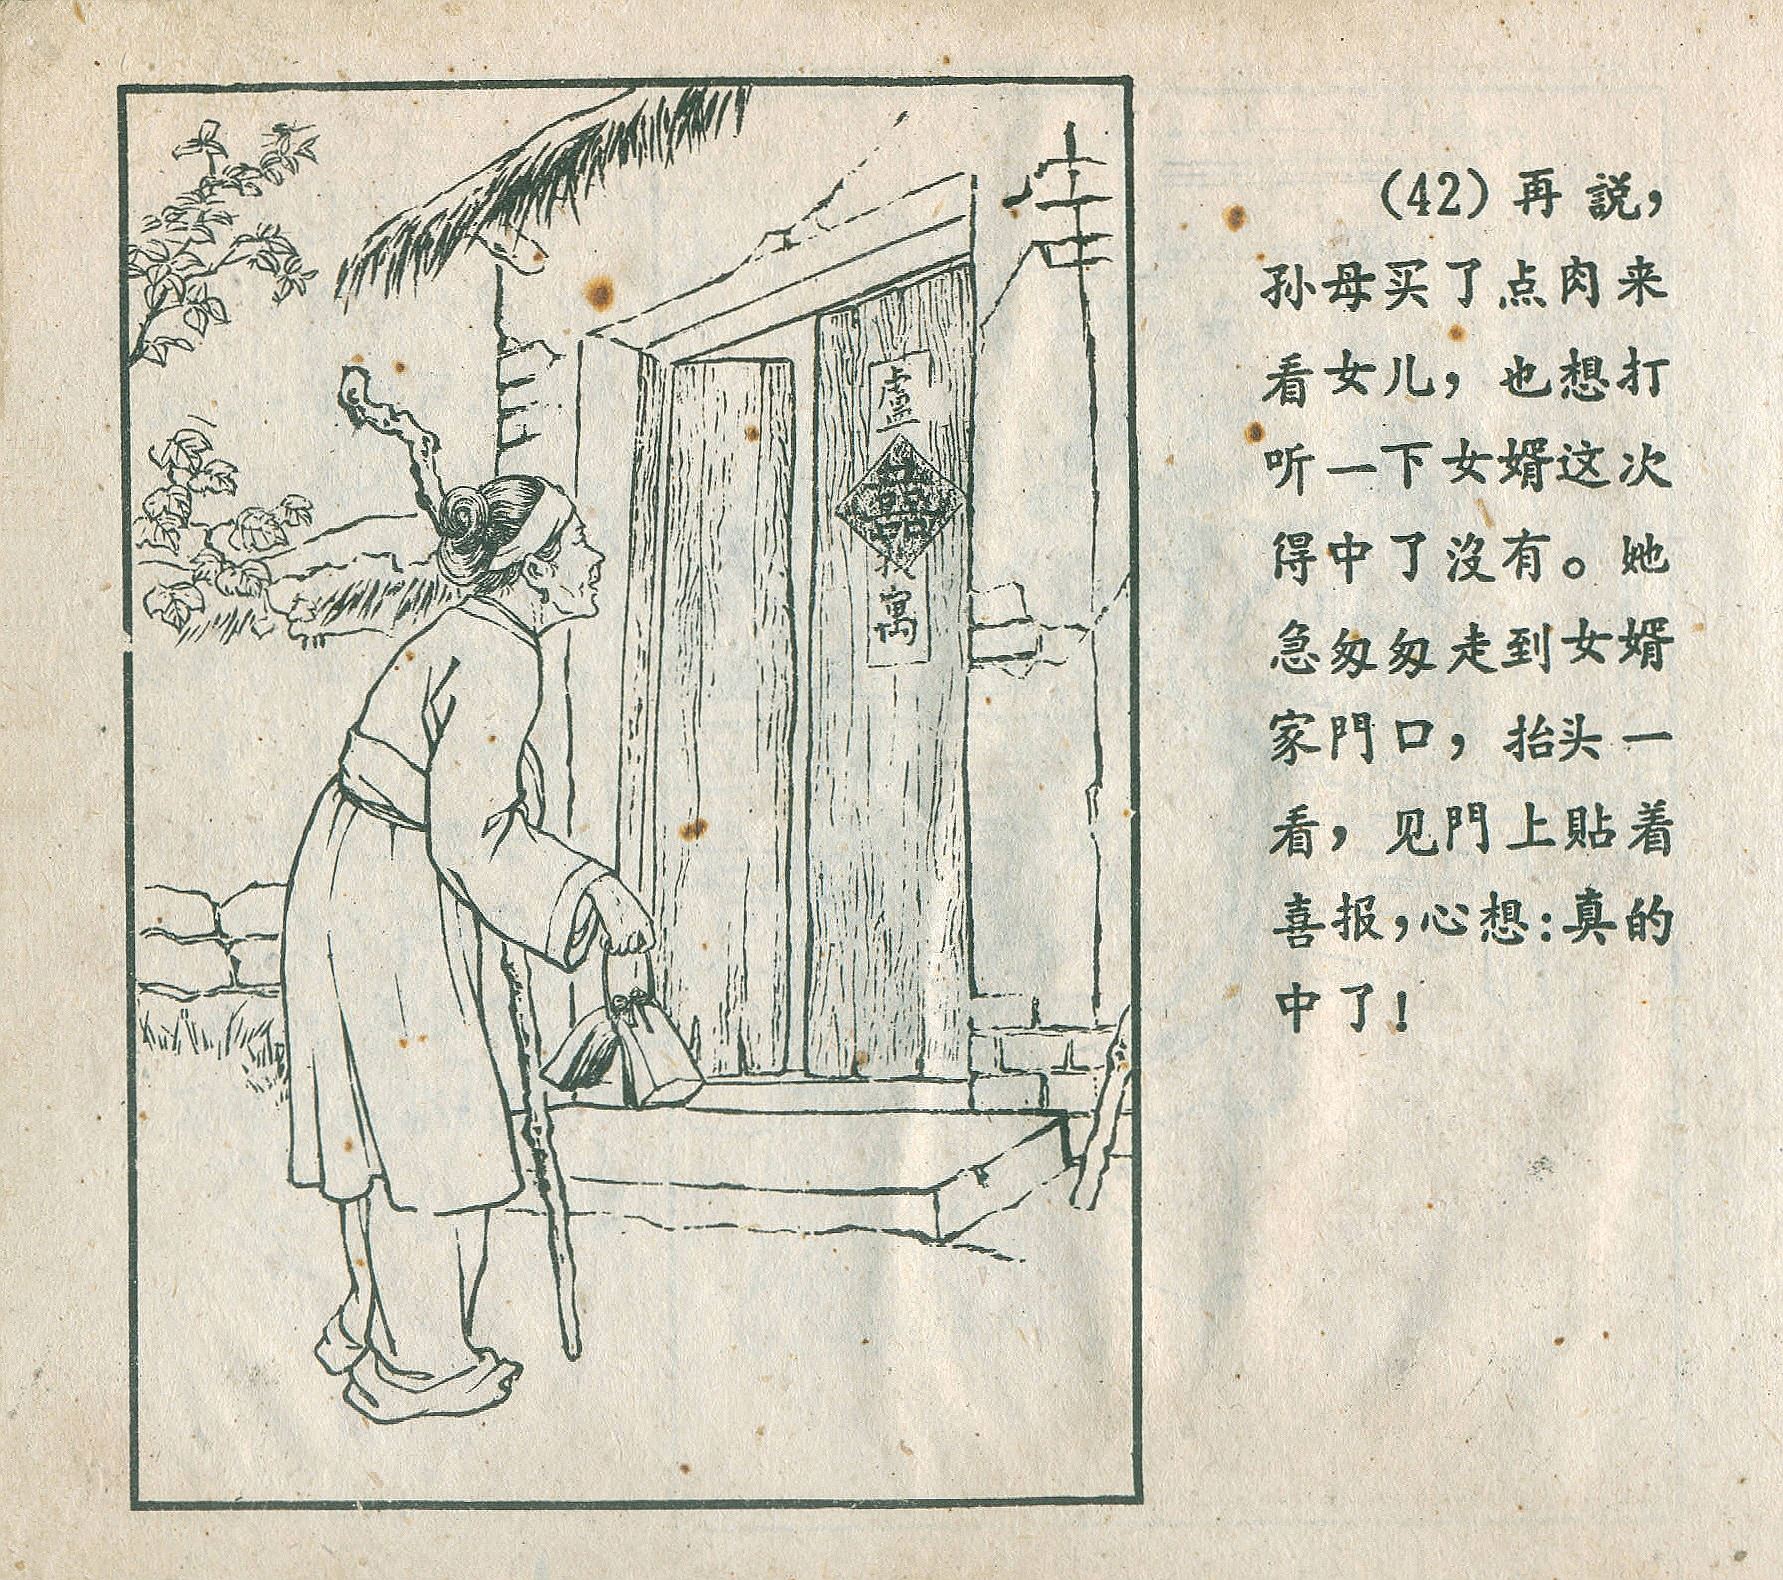 (42)再説，
孙母买了点肉来
看女儿，也想打
听一下女婿这次
得中了沒有。她
急匆匆走到女婿
家門口，抬头一
看，见門上貼着
喜报，心想：真的
中了！
盧
囍
寓